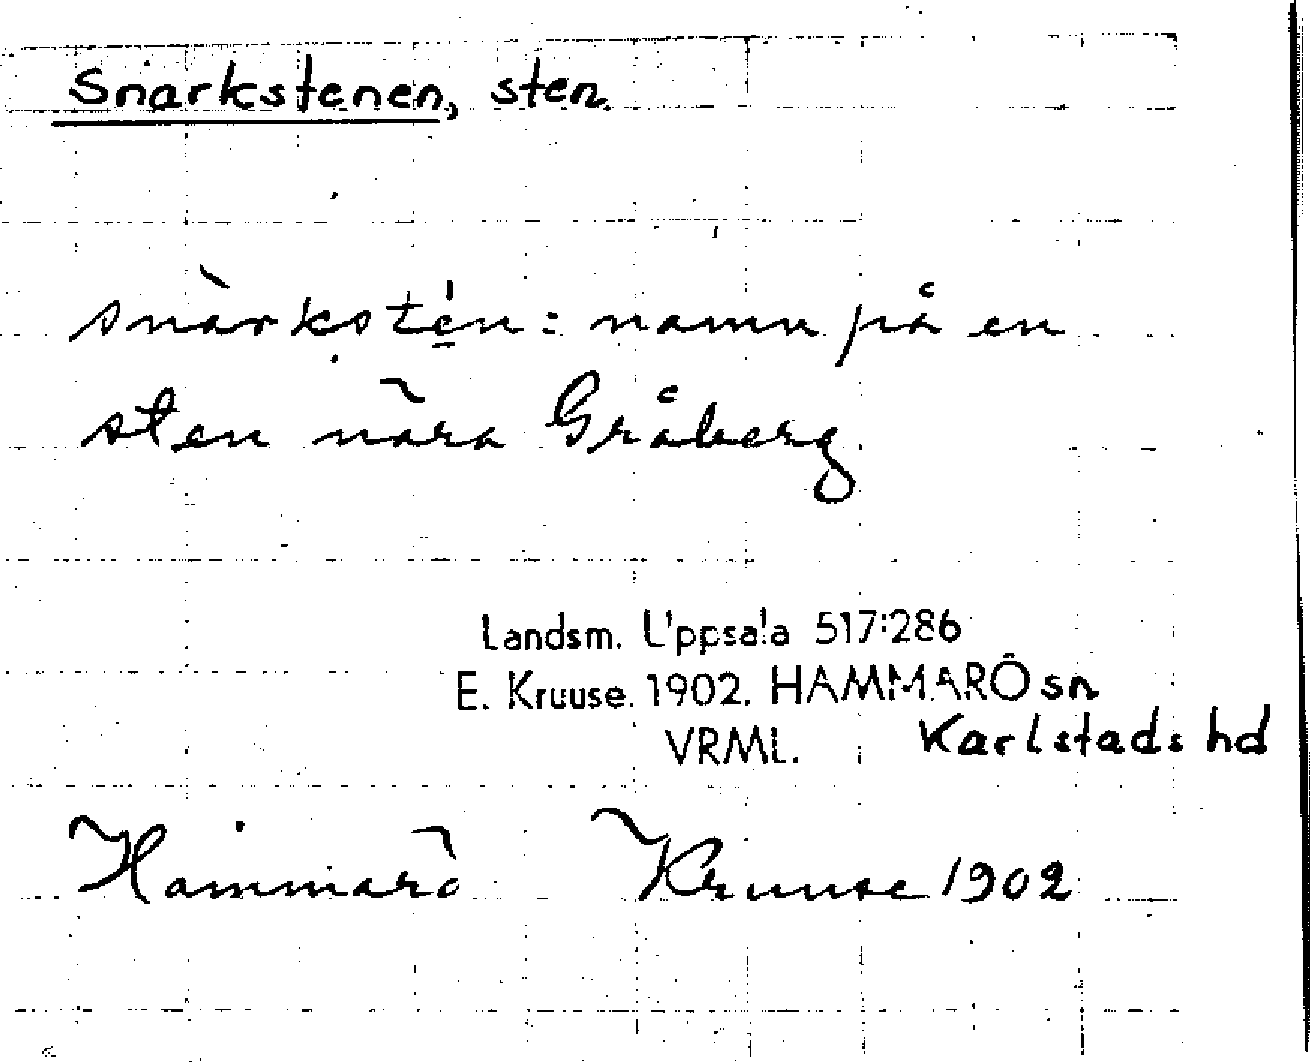 Snarkstenen, sten.
snàrkstén: namn på en
sten nära Gråberg
Landsm. Uppsala 517:286
E. Kruuse. 1902. HAMMARÖ sn
VRML. Karlstads hd
Hammarö Kruuse 1902